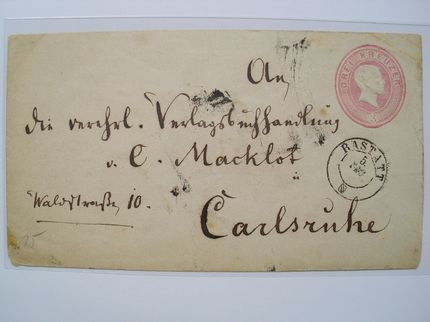 DREI KREUZER
3
An
die verehrl. Verlagsbuchhandlung
v. C. Macklot
Waldstraße, 10.
Carlsruhe
RASTATT
25